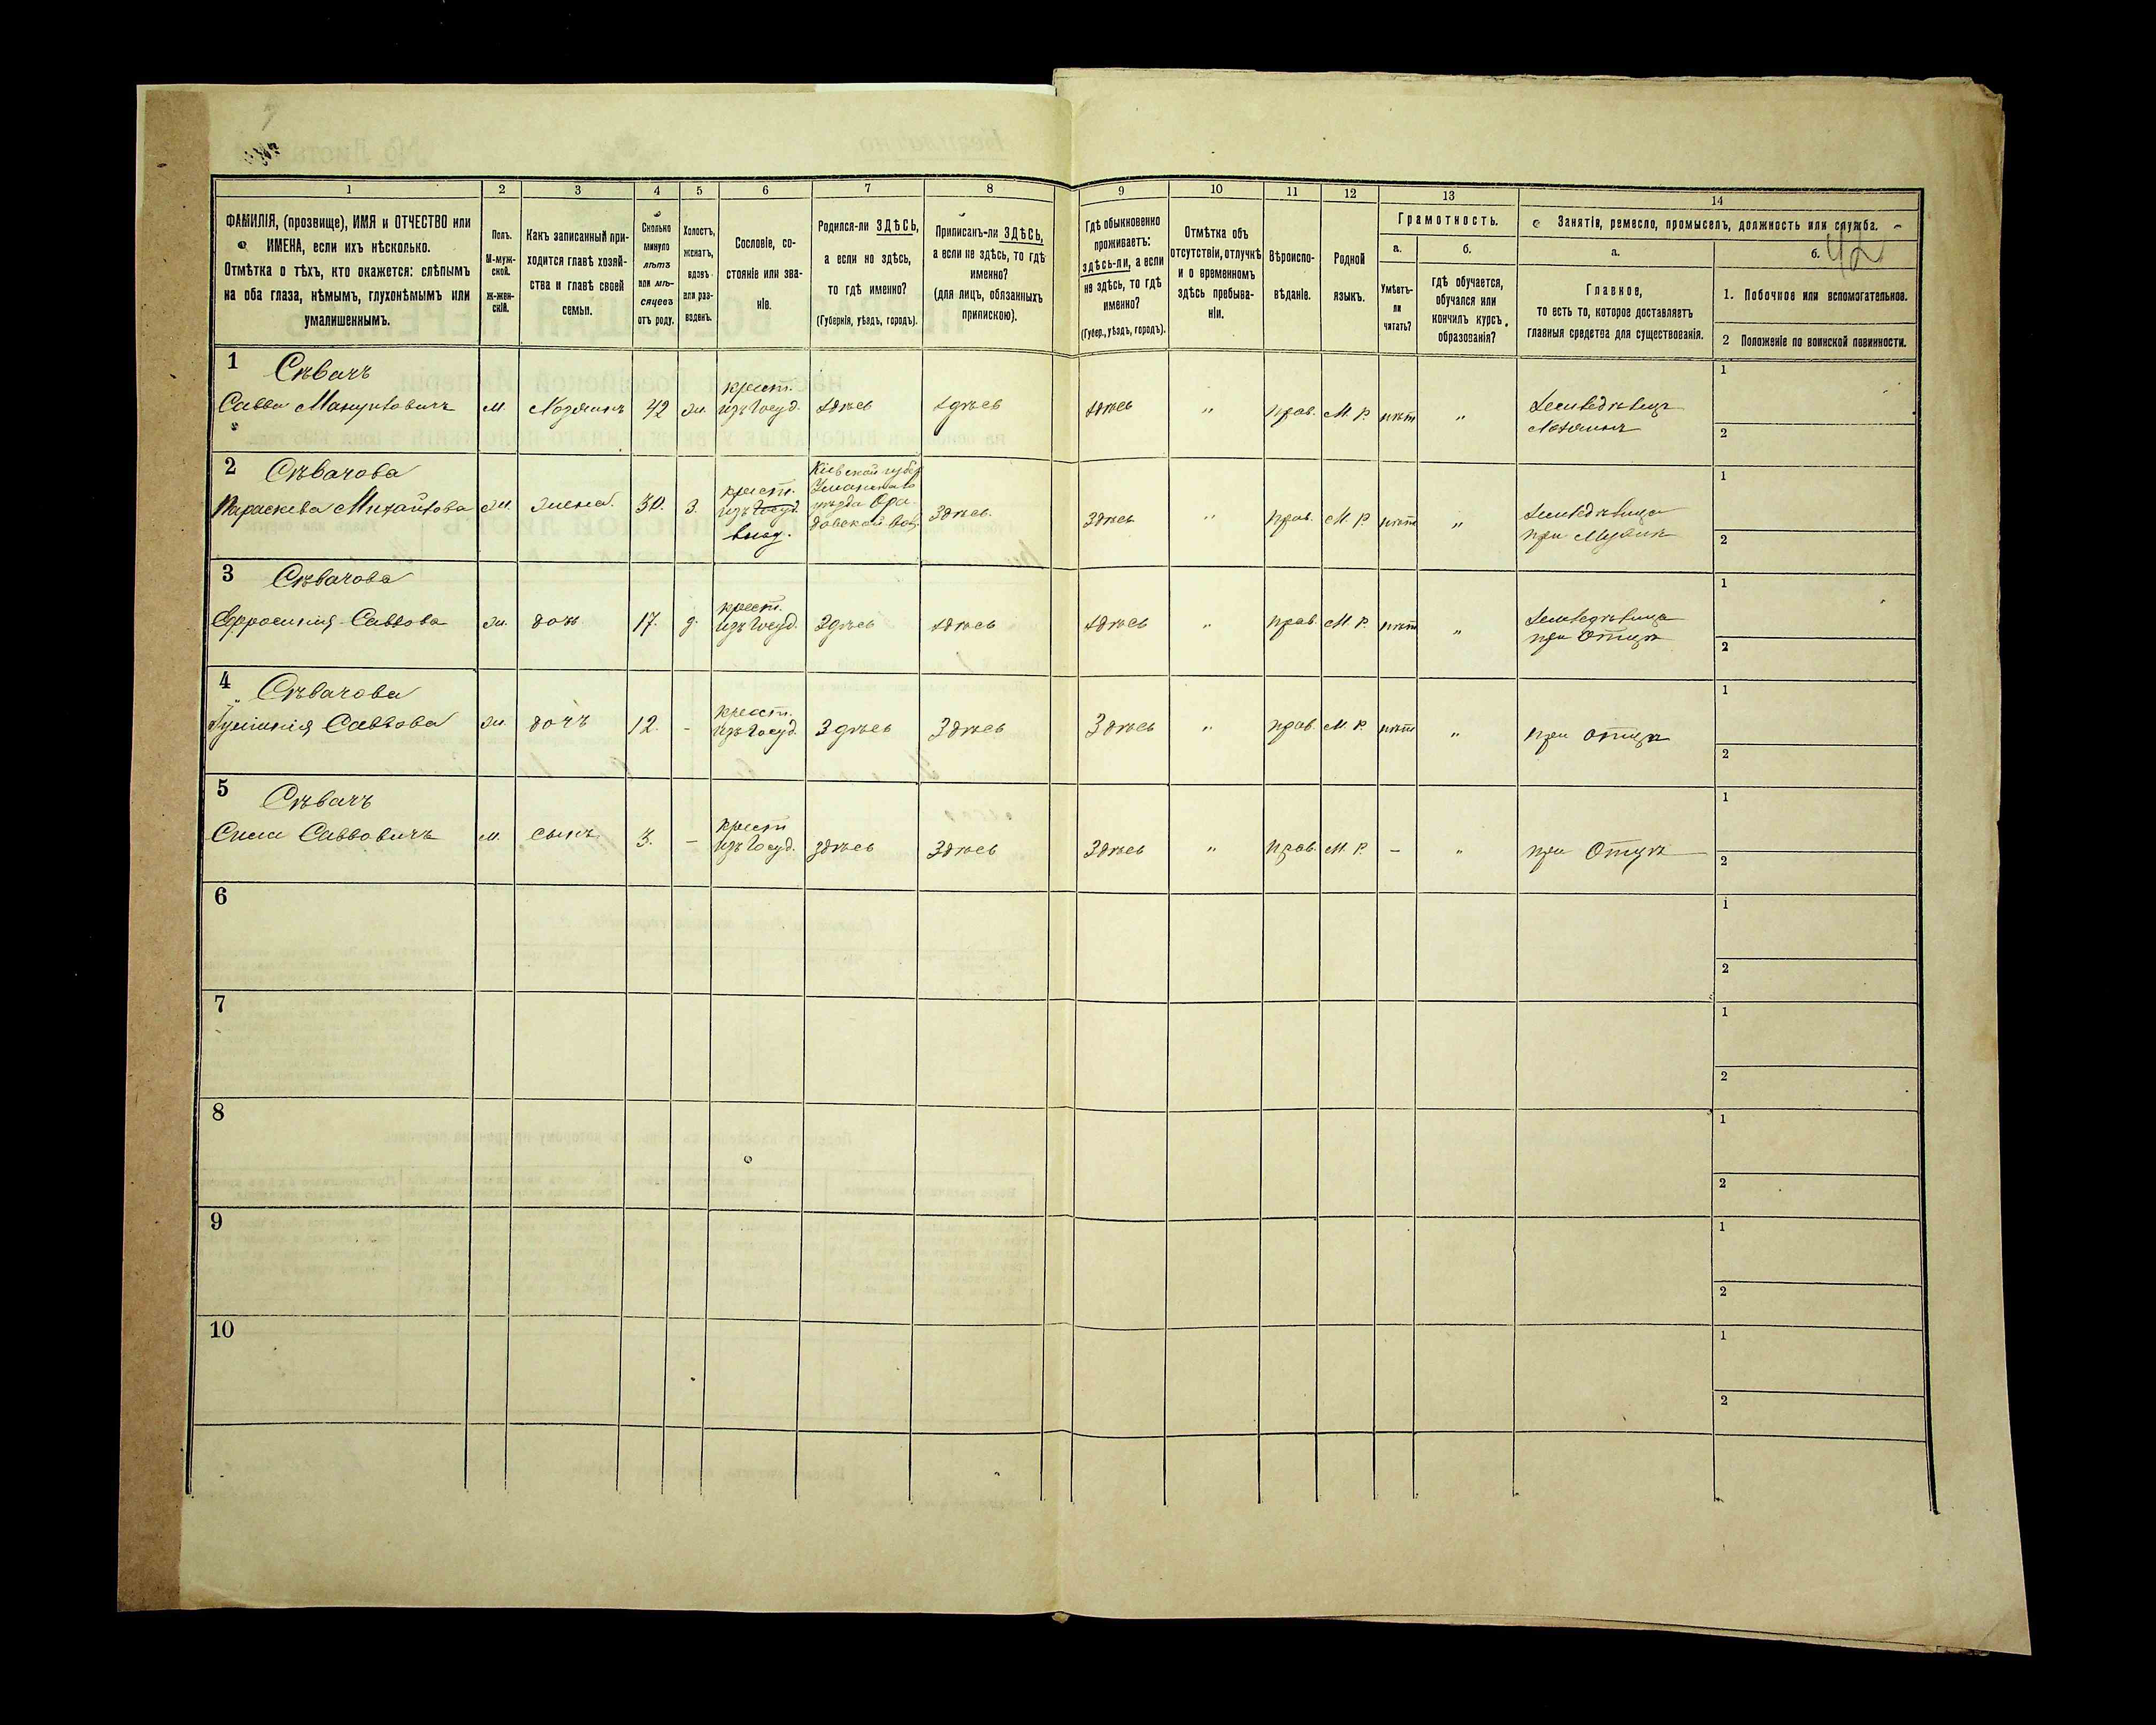 42
1 2 3 4 5 6 7 8 9 10 11 12 13 14
ФАМИЛІЯ, (прозвище), ИМЯ и ОТЧЕСТВО или
ИМЕНА, если ихъ нѣсколько.
Отмѣтка о тѣхъ, кто окажется: слѣпымъ
на оба глаза, нѣмымъ, глухонѣмымъ или
умалишеннымъ.
Полъ.
М-муж-
ской.
ж-жен-
скій.
Какъ записанный при-
ходится главѣ хозяй-
ства и главѣ своей
семьи.
Сколько
минуло
лѣтъ
или мѣ-
сяцевъ
отъ роду.
Холостъ,
женатъ,
вдовъ
или раз-
веденъ.
Сословіе, со-
стояніе или зва-
ніе.
Родился-ли ЗДѢСЬ,
а если не здѣсь,
то гдѣ именно?
(Губернія, уѣздъ, городъ).
Приписанъ-ли ЗДѢСЬ,
а если не здѣсь, то гдѣ
именно?
(для лицъ, обязанныхъ
припискою).
Гдѣ обыкновенно
проживаетъ:
здѣсь-ли, а если
не здѣсь, то гдѣ
именно?
(Губер., уѣздъ, городъ).
Отмѣтка объ
отсутствіи, отлучкѣ
и о временномъ
здѣсь пребыва-
ніи.
Вѣроиспо-
вѣданіе.
Родной
языкъ.
Грамотность.
а.
Умѣетъ-
ли
читать?
б.
гдѣ обучается,
обучался или
кончилъ курсъ
образованія?
Занятія, ремесло, промыселъ, должность или служба.
а.
Главное,
то есть то, которое доставляетъ
главныя средства для существованія.
б.
1. Побочное или вспомогательное.
2 Положеніе по воинской повинности.
1 Сѣвачъ
Савва Мануиловичъ м. Хозяинъ 42 ж. крест. изъ Госуд. здѣсь здѣсь здѣсь " прав. М. Р. нѣтъ "
Хозяинъ
1
2
2 Сѣвачова
Параскева Михайлова ж. жена. 30. з. крест. изъ Госуд.
Кіевской губер
уѣзда
Здѣсь. Здѣсь " прав. М. Р. нѣтъ "
при Мужѣ
1
2
3 Сѣвачова
Ефросинія Саввова ж. дочь 17. д. крест. изъ Госуд. Здѣсь здѣсь здѣсь " прав. М. Р. нѣтъ "
при Отцѣ
1
2
4 Сѣвачова
Саввова ж. дочъ 12. - крест. изъ Госуд. Здѣсь Здѣсь Здѣсь " прав. М. Р. нѣтъ " при отцѣ
1
2
5 Сѣвачъ
Саввовичъ м. сынъ 3. - крест изъ Госуд. здѣсь Здѣсь Здѣсь " прав. М. Р. - " при Отцѣ
1
2
6
1
2
7
1
2
8
1
2
9
1
2
10
1
2